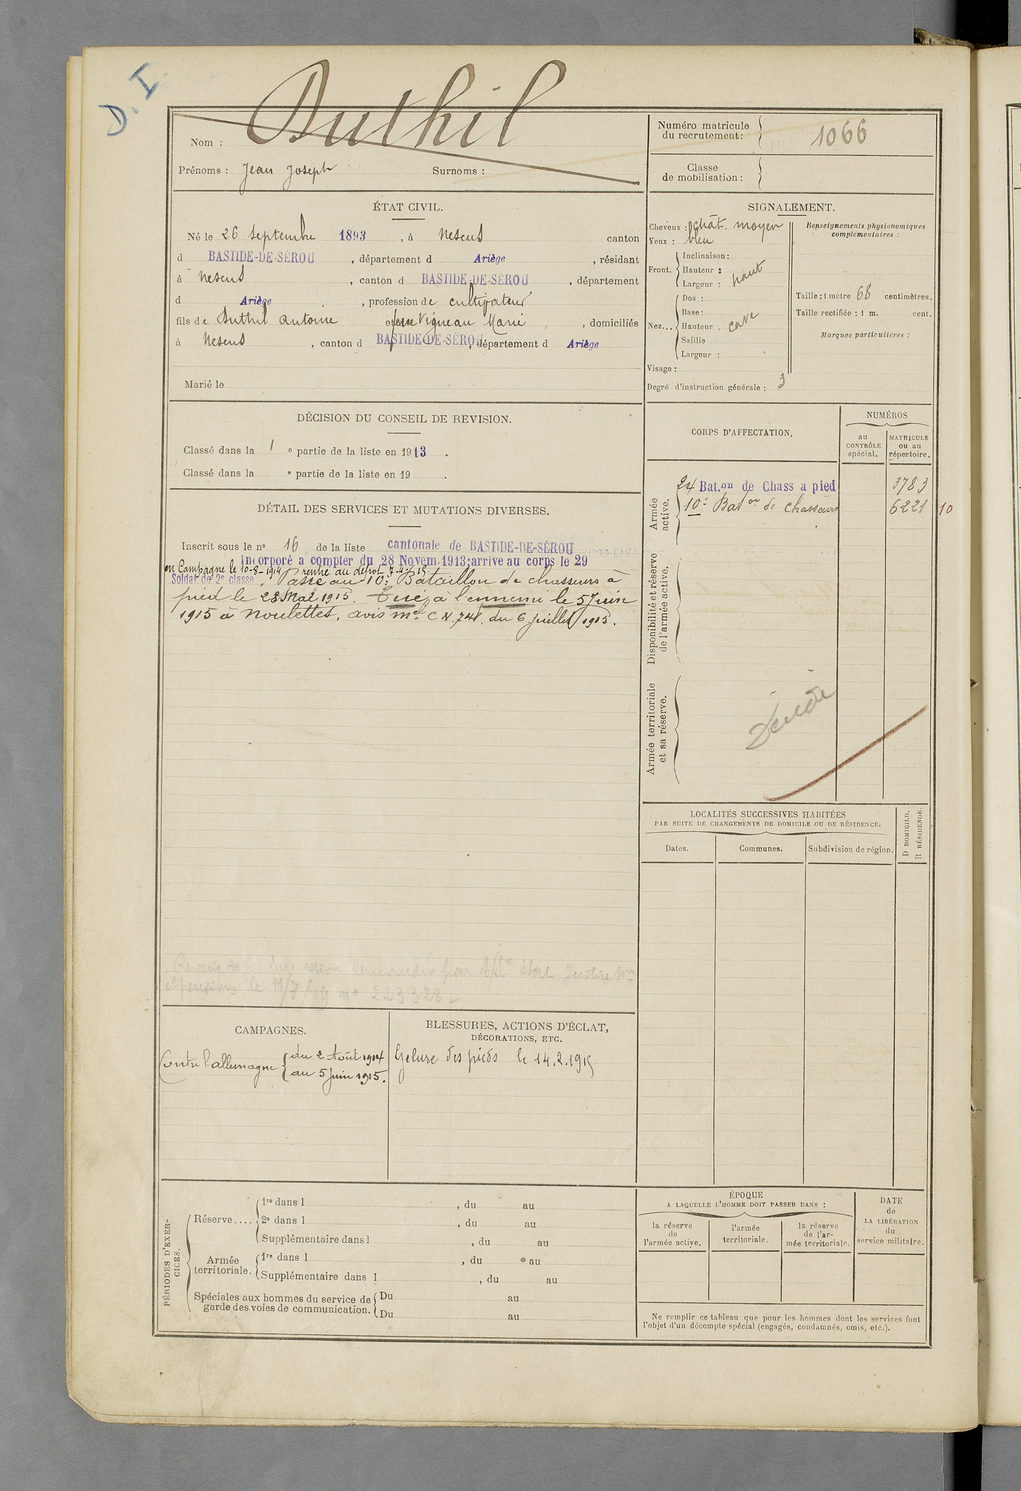 D. I
Nom : Duthil
Prénoms : Jean Joseph Surnoms :
Numéro matricule
du recrutement : 1066
Classe
de mobilisation :
ÉTAT CIVIL.
Né le 26 Septembre 1893, à Nescus canton
d BASTIDE-DE-SÉROU, département d Ariège, résidant
à Nescus, canton d BASTIDE-DE-SÉROU, département
d Ariège, profession de cultivateur
fils de Duthil Antoine et de Vigneau Marie, domiciliés
à Nescus, canton d BASTIDE-DE-SÉROU, département d Ariège
Marié le
SIGNALEMENT.
Cheveux : chât. moyen
Yeux : bleu
Front. Inclinaison :
Hauteur :
Largeur : haut
Nez... Dos :
Base :
Hauteur cave
Saillie
Largeur :
Visage :
Renseignements physionomiques
complémentaires :
Taille : 1 mètre 68 centimètres.
Taille rectifiée : 1 m. cent.
Marques particulières :
Degré d'instruction générale : 3
DÉCISION DU CONSEIL DE REVISION.
Classé dans la 1 e partie de la liste en 1913.
Classé dans la e partie de la liste en 19 .
DÉTAIL DES SERVICES ET MUTATIONS DIVERSES.
Inscrit sous le n° 16 de la liste cantonale de BASTIDE-DE-SÉROU
Incorporé à compter du 28 Novem. 1913; arrivé au corps le 29
en Campagne le 10-8-1914 rentré au dépôt 7-4-15
Soldat de 2e classe. Passé au 10e Bataillon de chasseurs à
pied le 28 Mai 1915. Tué à l'ennemi le 5 Juin
1915 à Noulettes, avis mel C N 748 du 6 juillet 1915.
CORPS D'AFFECTATION.
NUMÉROS
au
CONTRÔLE
spécial.
MATRICULE
ou au
répertoire.
Armée
active.
24 Bat.on de Chass à pied 3783
10e Baton de chasseurs 6221 10
Disponibilité et réserve
de l'armée active.
Armée territoriale
et sa réserve.
LOCALITÉS SUCCESSIVES HABITÉES
PAR SUITE DE CHANGEMENTS DE DOMICILE OU DE RÉSIDENCE.
Dates. Communes. Subdivision de région.
D DOMICILE.
R RÉSIDENCE.
le 11/7/19 n° 223328
CAMPAGNES.
Contre l'allemagne du 2 Août 1914
au 5 Juin 1915.
BLESSURES, ACTIONS D'ÉCLAT,
DÉCORATIONS, ETC.
Gelure des pieds le 14.2.1915
PÉRIODES D'EXERCICES.
Réserve.... 1re dans l , du au
2e dans l , du au
Supplémentaire dans l , du au
Armée
territoriale. 1re dans l , du au
Supplémentaire dans l , du au
Spéciales aux hommes du service de
garde des voies de communication. Du au
Du au
ÉPOQUE
A LAQUELLE L'HOMME DOIT PASSER DANS :
la réserve
de
l'armée active.
l'armée
territoriale.
la réserve
de l'ar-
mée territoriale.
DATE
de
LA LIBÉRATION
du
service militaire.
Ne remplir ce tableau que pour les hommes dont les services font
l'objet d'un décompte spécial (engagés, condamnés, omis, etc.).